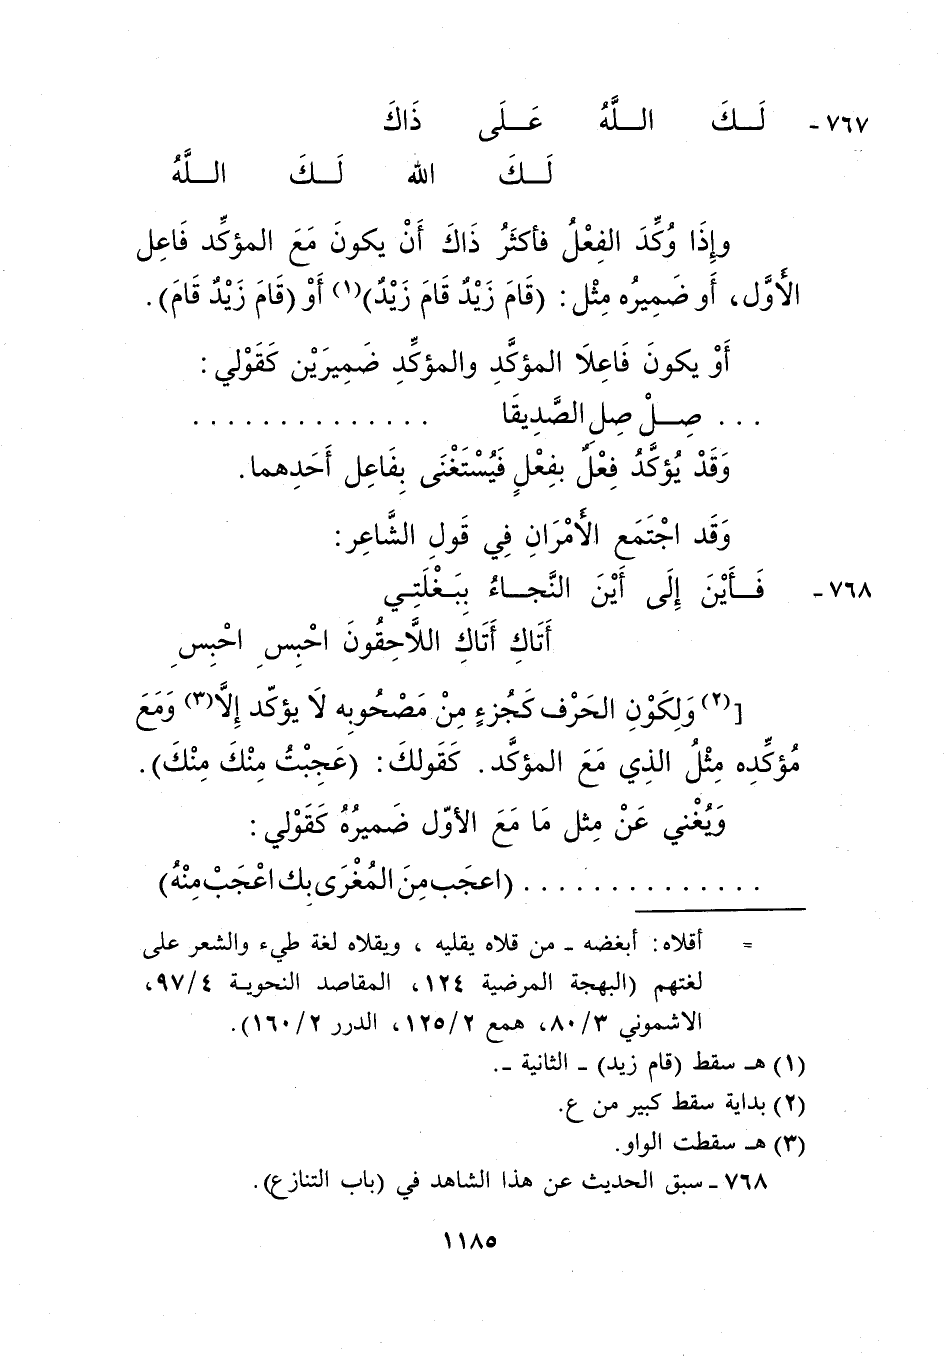 ٧٦٧- لَــكَ اللَّـهُ عَـلَى ذَاكَ
لَــكَ الله لَــكَ اللَّـهُ
وإِذَا وُكِّدَ الفِعْلُ فأكثَرُ ذَاكَ أَنْ يكونَ مَعَ المؤكِّد فَاعِل
الأَوَّل، أَو ضَمِيرُه مِثْل: (قَامَ زَيْدٌ قَامَ زَيْدٌ)(١) أَوْ (قَامَ زَيْدٌ قَامَ).
أَوْ يكونَ فَاعِلَا المؤكَّدِ والمؤكِّدِ ضَمِيرَيْن كَقَوْلي:
... صِــلْ صِلِ الصَّدِيقَا ..............
وَقَدْ يُؤكَّدُ فِعْلٌ بفِعْلٍ فَيُسْتَغْنَى بِفَاعِل أَحَدِهما.
وَقَد اجْتَمَع الأَمْرَانِ فِي قَولِ الشَّاعِر:
٧٦٨- فَــأَيْنَ إِلَى أَيْنَ النَّجــاءُ بِبَـغْلَتِـي
أَتَاكِ أَتَاكِ اللَّاحِقُونَ احْبِسِ احْبِسِ
[(٢)وَلِكَوْنِ الحَرْف كَجُزءٍ مِنْ مَصْحُوبِه لَا يؤكّد إِلَّا(٣) وَمَعَ
مُؤكِّدِه مِثْلُ الذِي مَعَ المؤكَّد. كَقَولكَ: (عَجِبْتُ مِنْكَ مِنْكَ).
وَيُغْني عَنْ مِثل مَا مَعَ الأوّل ضَميرُهُ كَقَوْلي:
.............. (اعجَب مِنَ المُغْرَى بك اعْجَبْ مِنْهُ)
= أقلاه: أبغضه - من قلاه يقليه، ويقلاه لغة طيء والشعر على
لغتهم (البهجة المرضية ١٢٤، المقاصد النحوية ٩٧/٤،
الاشموني ٨٠/٣، همع ١٢٥/٢، الدرر ١٦٠/٢).
(١) هـ سقط (قام زيد) - الثانية -.
(٢) بداية سقط كبير من ع.
(٣) هـ سقطت الواو.
٧٦٨ - سبق الحديث عن هذا الشاهد في (باب التنازع).
١١٨٥